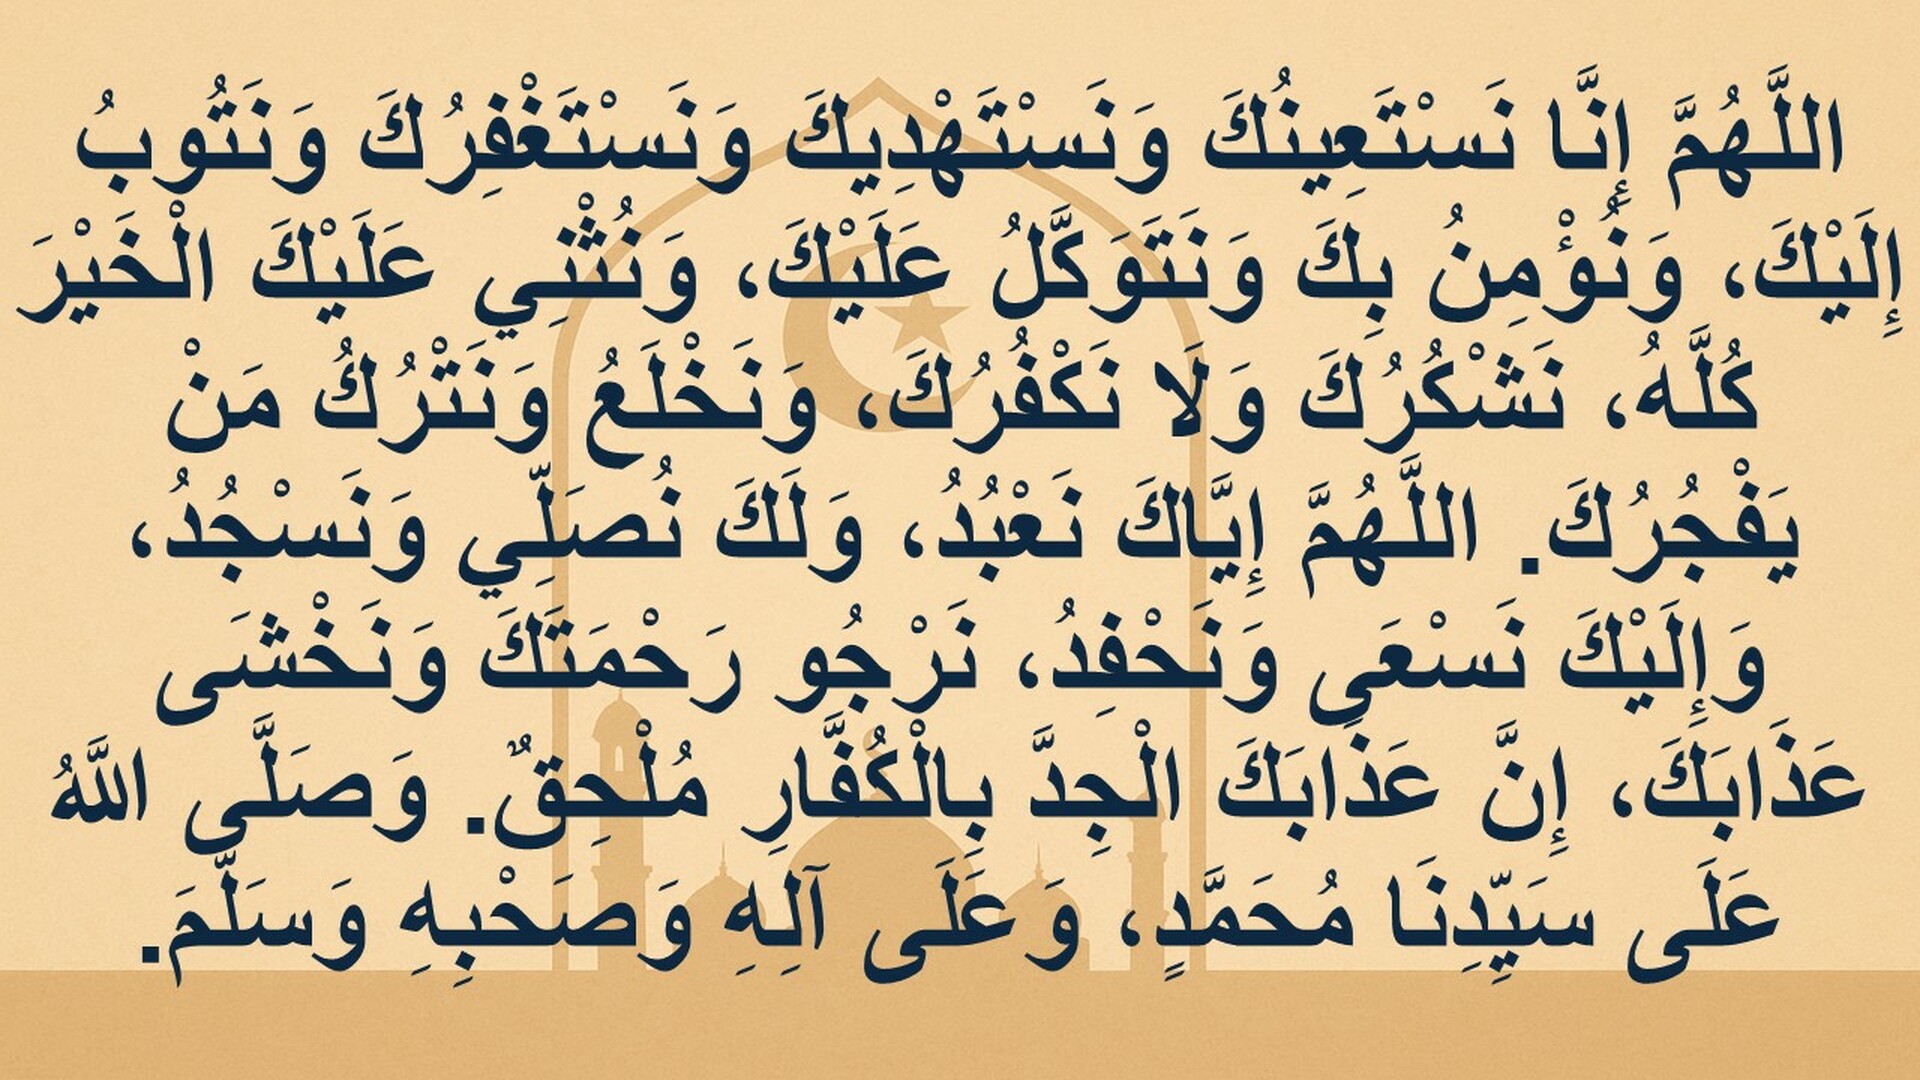 اللَّهُمَّ إِنَّا نَسْتَعِينُكَ وَنَسْتَهْدِيكَ وَنَسْتَغْفِرُكَ وَنَتُوبُ
إِلَيْكَ، وَنُؤْمِنُ بِكَ وَنَتَوَكَّلُ عَلَيْكَ، وَنُثْنِي عَلَيْكَ الْخَيْرَ
كُلَّهُ، نَشْكُرُكَ وَلَا نَكْفُرُكَ، وَنَخْلَعُ وَنَتْرُكُ مَنْ
يَفْجُرُكَ. اللَّهُمَّ إِيَّاكَ نَعْبُدُ، وَلَكَ نُصَلِّي وَنَسْجُدُ،
وَإِلَيْكَ نَسْعَى وَنَحْفِدُ، نَرْجُو رَحْمَتَكَ وَنَخْشَى
عَذَابَكَ، إِنَّ عَذَابَكَ الْجِدَّ بِالْكُفَّارِ مُلْحِقٌ. وَصَلَّى اللهُ
عَلَى سَيِّدِنَا مُحَمَّدٍ، وَعَلَى آلِهِ وَصَحْبِهِ وَسَلَّمَ.